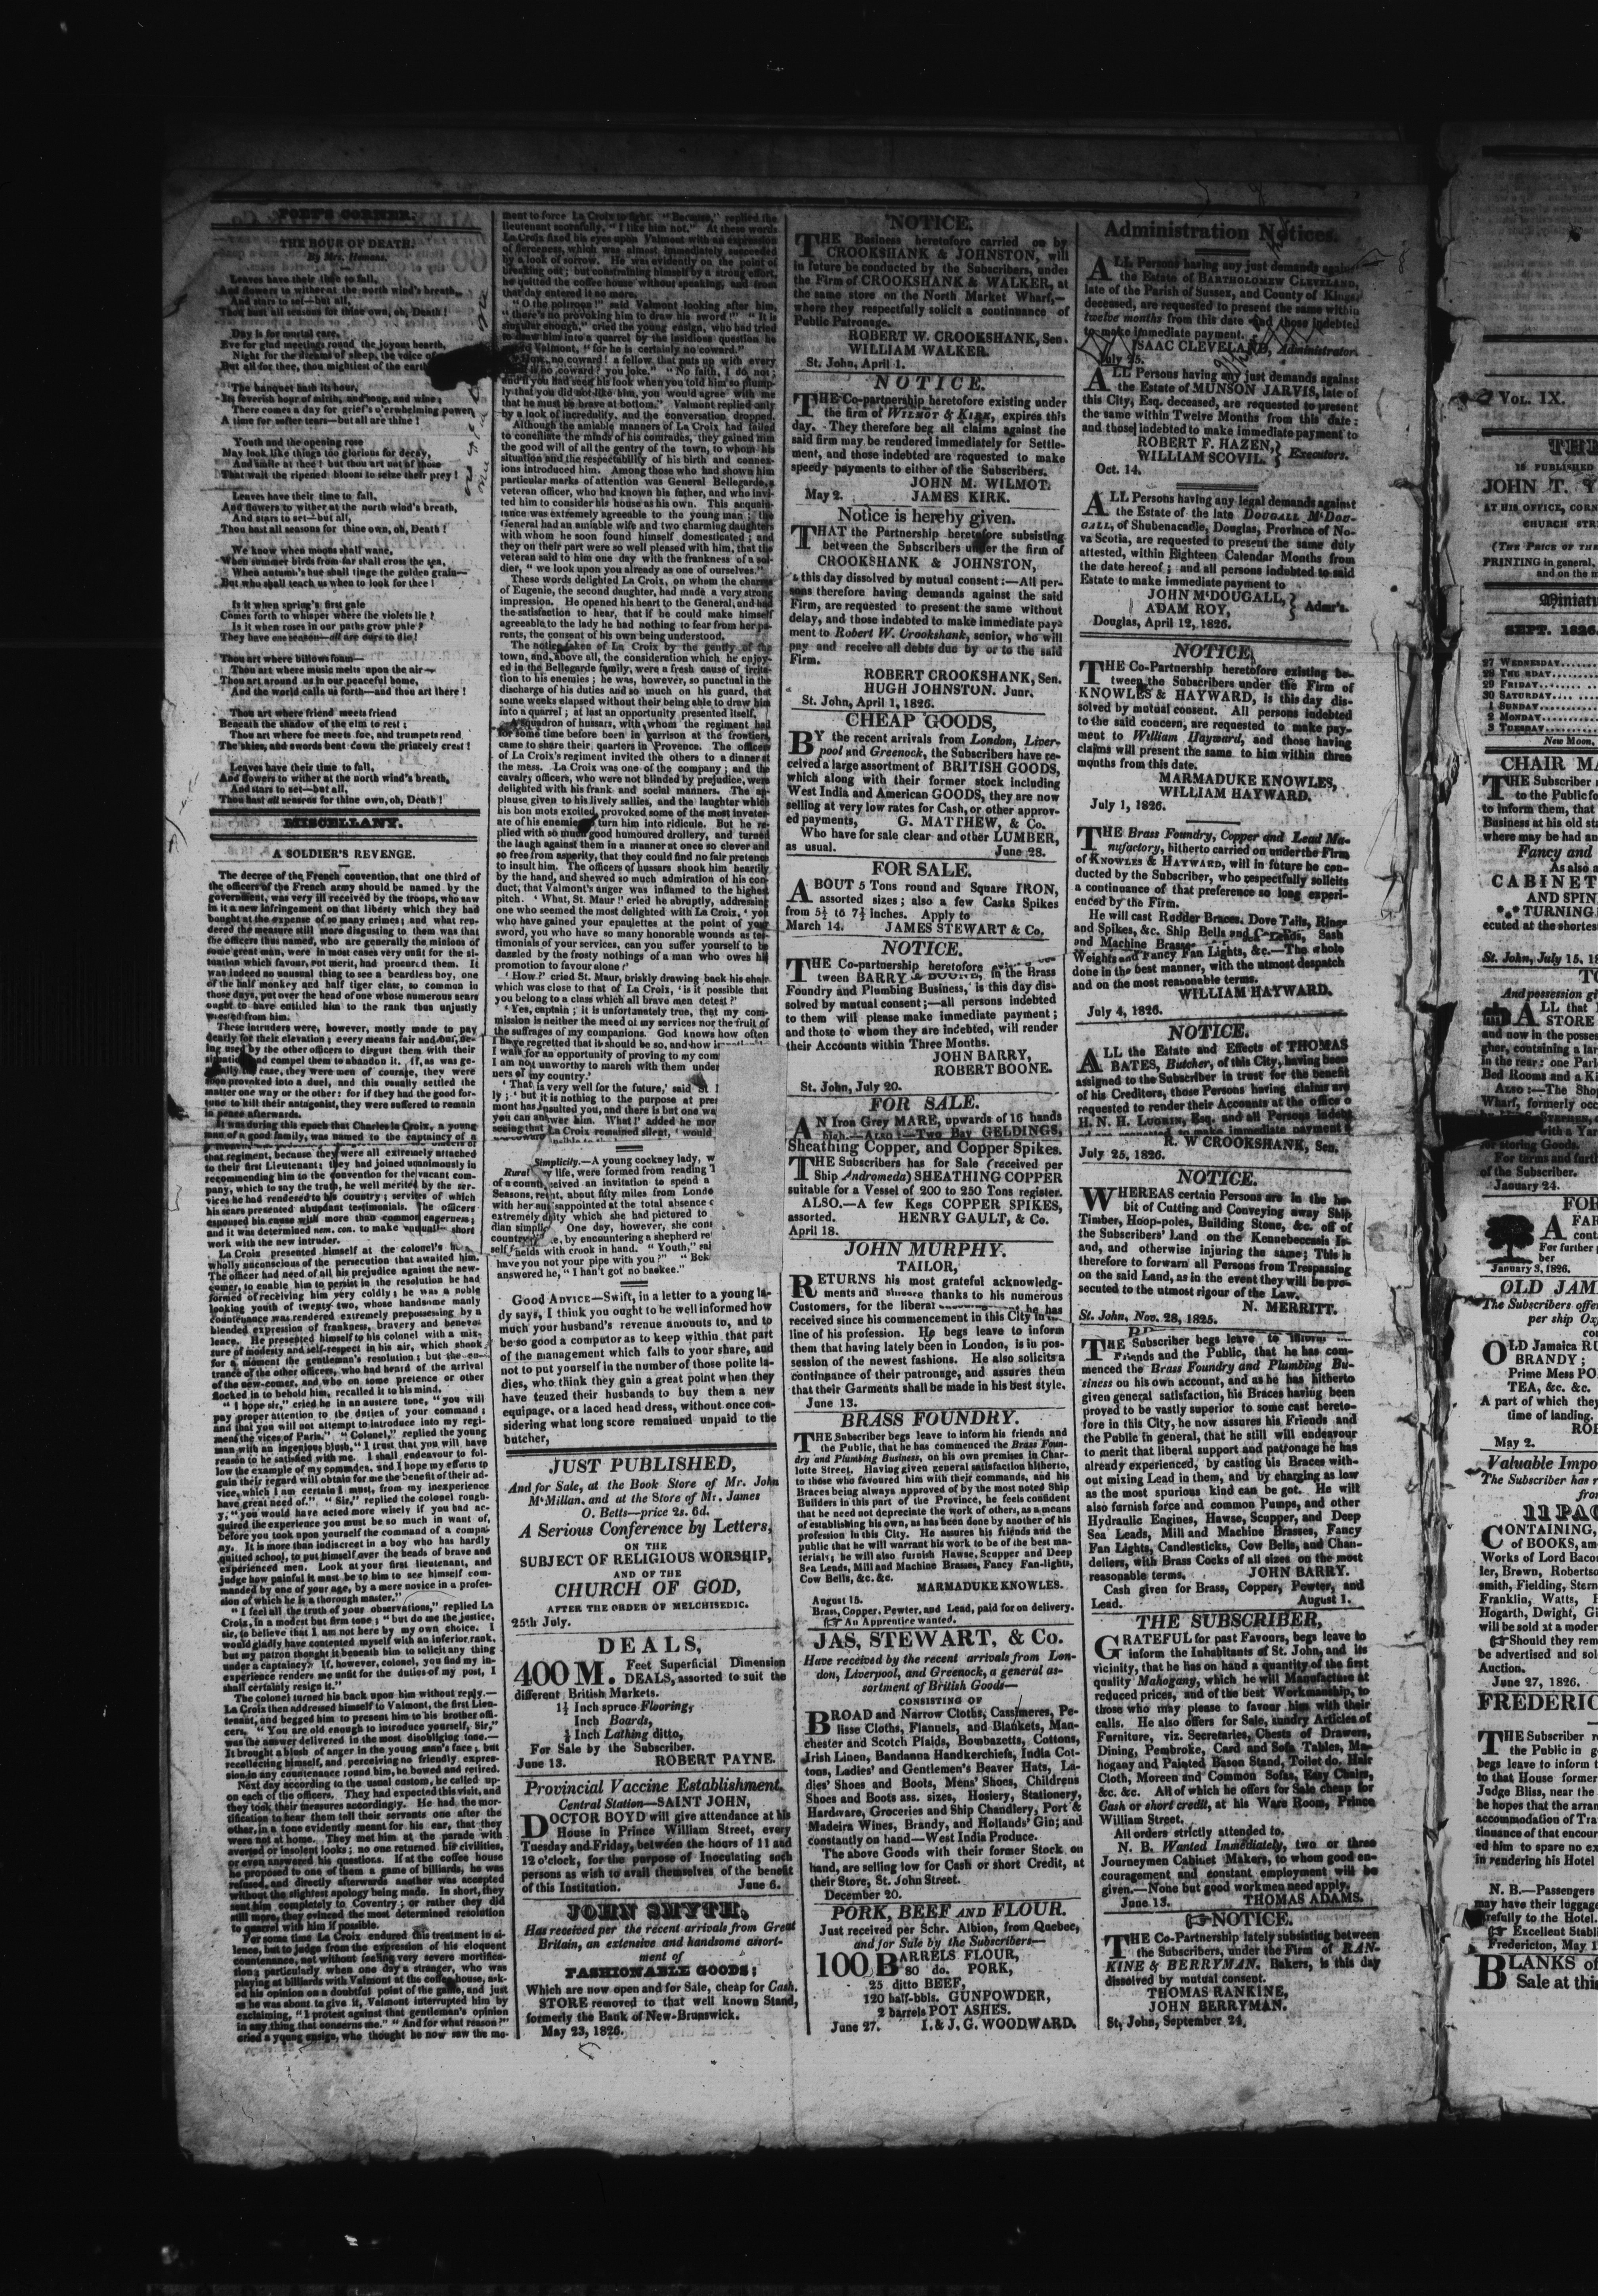 POET'S CORNER.
THE HOUR OF DEATH.
By Mrs. Hemans.
Leaves have their time to fall,
And flowers to wither at the north wind's breath,
And stars to set—but all,
Thou hast all seasons for thine own, oh, Death!
Day is for mortal care,
Eve for glad meetings round the joyous hearth,
Night for the dreams of sleep, the voice of
But all for thee, thou mightiest of the earth
The banquet hath its hour,
Its feverish hour of mirth, and song, and wine;
There comes a day for grief's o'erwhelming power
A time for softer tears—but all are thine!
Youth and the opening rose
May look like things too glorious for decay,
And smile at thee! but thou art not of those
That wait the ripened bloom to seize their prey!
Leaves have their time to fall,
And flowers to wither at the north wind's breath,
And stars to set—but all,
Thou hast all seasons for thine own, oh, Death!
We know when moons shall wane,
When summer birds from far shall cross the sea,
When autumn's hue shall tinge the golden grain—
But who shall teach us when to look for thee!
Is it when spring's first gale
Comes forth to whisper where the violets lie?
Is it when roses in our paths grow pale?
They have one season—all are ours to die!
Thou art where billows foam—
Thou art where music melts upon the air—
Thou art around us in our peaceful home,
And the world calls us forth—and thou art there!
Thou art where friend meets friend
Beneath the shadow of the elm to rest;
Thou art where foe meets foe, and trumpets rend
The skies, and swords beat down the princely crest!
Leaves have their time to fall,
And flowers to wither at the north wind's breath,
And stars to set—but all,
Thou hast all seasons for thine own, oh, Death!
MISCELLANY.
A SOLDIER'S REVENGE.
The decree of the French convention, that one third of
the officers of the French army should be named by the
government, was very ill received by the troops, who saw
in it a new infringement on that liberty which they had
bought at the expense of so many crimes; and what ren-
dered the measure still more disgusting to them was that
the officers thus named, who are generally the minions of
some great man, were in most cases very unfit for the si-
tuation which favour, not merit, had procured them. It
was indeed no unusual thing to see a beardless boy, one
of the half monkey and half tiger class, so common in
those days, put over the head of one whose numerous scars
ought to have entitled him to the rank thus unjustly
wrested from him.
These intruders were, however, mostly made to pay
dearly for their elevation; every means fair and four, be-
ing used by the other officers to disgust them with their
situation and compel them to abandon it. If, as was ge-
nerally the case, they were men of courage, they were
soon provoked into a duel, and this usually settled the
matter one way or the other: for if they had the good for-
tune to kill their antagonist, they were suffered to remain
in peace afterwards.
It was during this epoch that Charles la Croix, a young
man of a good family, was named to the captaincy of a
that regiment, because they were all extremely attached
to their first Lieutenant; they had joined unanimously in
recommending him to the convention for the vacant com-
pany, which to say the truth, he well merited by the ser-
vices he had rendered to his country; services of which
his scars presented abundant testimonials. The officers
espoused his cause with more than common eagerness;
and it was determined nem. con. to make unusual short
work with the new intruder.
La Croix presented himself at the colonel's
wholly unconscious of the persecution that awaited him.
The officer had need of all his prejudice against the new-
comer, to enable him to persist in the resolution he had
formed of receiving him very coldly; he was a noble
looking youth of twenty two, whose handsome manly
countenance was rendered extremely prepossessing by a
blended expression of frankness, bravery and benevo-
lence. He presented himself to his colonel with a mix-
ture of modesty and self-respect in his air, which shook
for a moment the gentleman's resolution; but the en-
trance of the other officers, who had heard of the arrival
of the new-comer, and who on some pretence or other
flocked in to behold him, recalled it to his mind.
"I hope sir," cried he in an austere tone, "you will
pay proper attention to the duties of your command;
and that you will not attempt to introduce into my regi-
ment the vices of Paris." "Colonel," replied the young
man with an ingenious blush, "I trust that you will have
reason to be satisfied with me. I shall endeavour to fol-
low the example of my comrades, and I hope my efforts to
gain their regard will obtain for me the benefit of their ad-
vice, which I am certain I must, from my inexperience
have great need of." "Sir," replied the colonel rough-
y, "you would have acted more wisely if you had ac-
quired the experience you must be so much in want of,
before you took upon yourself the command of a compa-
ny. It is more than indiscreet in a boy who has hardly
quitted school, to put himself over the heads of brave and
experienced men. Look at your first lieutenant, and
judge how painful it must be to him to see himself com-
manded by one of your age, by a mere novice in a profes-
sion of which he is a thorough master."
"I feel all the truth of your observations," replied La
Croix, in a modest but firm tone; "but do me the justice,
sir, to believe that I am not here by my own choice. I
would gladly have contented myself with an inferior rank,
but my patron thought it beneath him to solicit any thing
under a captaincy. If, however, colonel, you find my in-
experience renders me unfit for the duties of my post, I
shall certainly resign it."
The colonel turned his back upon him without reply.—
La Croix then addressed himself to Valmont, the first Lieu-
tenant, and begged him to present him to his brother offi-
cers. "You are old enough to introduce yourself, Sir,"
was the answer delivered in the most disobliging tone.—
It brought a blush of anger in the young man's face; but
recollecting himself, and perceiving no friendly expres-
sion in any countenance round him, he bowed and retired.
Next day according to the usual custom, he called up-
on each of the officers. They had expected this visit, and
they took their measures accordingly. He had the mor-
tification to hear them tell their servants one after the
other, in a tone evidently meant for his ear, that they
were not at home. They met him at the parade with
averted or insolent looks; no one returned his civilities,
or even answered his questions. If at the coffee house
he proposed to one of them a game of billiards, he was
refused, and directly afterwards another was accepted
without the slightest apology being made. In short, they
sent him completely to Coventry; or rather they did
still more, they evinced the most determined resolution
to quarrel with him if possible.
For some time La Croix endured this treatment in si-
lence, but to judge from the expression of his eloquent
countenance, not without feeling very severe mortifica-
tion; particularly when one day a stranger, who was
playing at billiards with Valmont at the coffee house, ask-
ed his opinion on a doubtful point of the game, and just
as he was about to give it, Valmont interrupted him by
exclaiming, "I protest against that gentleman's opinion
in any thing that concerns me." "And for what reason?"
cried a young ensign, who thought he now saw the mo-
ment to force La Croix to fight. "Because," replied the
lieutenant scornfully, "I like him not." At these words
La Croix fixed his eyes upon Valmont with an expression
of fierceness, which was almost immediately succeeded
by a look of sorrow. He was evidently on the point of
breaking out; but constraining himself by a strong effort,
he quitted the coffee house without speaking, and from
that day entered it no more.
"O the poltroon!" said Valmont looking after him,
"there's no provoking him to draw his sword!" "It is
singular enough," cried the young ensign, who had tried
to draw him into a quarrel by the insidious question he
Valmont, "for he is certainly no coward."
no coward! a fellow, that puts up with every
is no coward? you joke." "No faith, I do not;
and if you had seen his look when you told him so plump-
ly that you did not like him, you would agree with me
that he must be brave at bottom." Valmont replied only
by a look of incredulity, and the conversation dropped.
Although the amiable manners of La Croix had failed
to conciliate the minds of his comrades, they gained him
the good will of all the gentry of the town, to whom his
situation and the respectability of his birth and connex-
ions introduced him. Among those who had shown him
particular marks of attention was General Bellegarde, a
veteran officer, who had known his father, and who invi-
ted him to consider his house as his own. This acquain-
tance was extremely agreeable to the young man; the
General had an amiable wife and two charming daughters
with whom he soon found himself domesticated; and
they on their part were so well pleased with him, that the
veteran said to him one day with the frankness of a sol-
dier, "we look upon you already as one of ourselves."
These words delighted La Croix, on whom the charms
of Eugenie, the second daughter, had made a very strong
impression. He opened his heart to the General, and had
the satisfaction to hear, that if he could make himself
agreeable to the lady he had nothing to fear from her pa-
rents, the consent of his own being understood.
The notice taken of La Croix by the gentry of the
town, and, above all, the consideration which he enjoy-
ed in the Bellegarde family, were a fresh cause of irrita-
tion to his enemies; he was, however, so punctual in the
discharge of his duties and so much on his guard, that
some weeks elapsed without their being able to draw him
into a quarrel; at last an opportunity presented itself.
A squadron of hussars, with whom the regiment had
for some time before been in garrison at the frontiers,
came to share their quarters in Provence. The officers
of La Croix's regiment invited the others to a dinner at
the mess. La Croix was one of the company; and the
cavalry officers, who were not blinded by prejudice, were
delighted with his frank and social manners. The ap-
plause given to his lively sallies, and the laughter which
his bon mots excited, provoked some of the most inveter-
ate of his enemies to turn him into ridicule. But he re-
plied with so much good humoured drollery, and turned
the laugh against them in a manner at once so clever and
so free from asperity, that they could find no fair pretence
to insult him. The officers of hussars shook him heartily
by the hand, and shewed so much admiration of his con-
duct, that Valmont's anger was inflamed to the highest
pitch. 'What, St. Maur!' cried he abruptly, addressing
one who seemed the most delighted with La Croix, 'you
who have gained your epaulettes at the point of your
sword, you who have so many honorable wounds as tes-
timonials of your services, can you suffer yourself to be
dazzled by the frosty nothings of a man who owes his
promotion to favour alone?'
'How?' cried St. Maur, briskly drawing back his chair
which was close to that of La Croix, 'is it possible that
you belong to a class which all brave men detest?'
'Yes, captain; it is unfortunately true, that my com-
mission is neither the meed of my services nor the fruit of
the suffrages of my companions. God knows how often
I have regretted that it should be so, and how
I wait for an opportunity of proving to my com
I am not unworthy to march with them under
ners of my country.'
'That is very well for the future,' said St
ly; 'but it is nothing to the purpose at pre
mont has insulted you, and there is but one wa
you can answer him. What!' added he mor
seeing that La Croix remained silent, 'would
Simplicity.—A young cockney lady, w
Rural life, were formed from reading T
of a country, received an invitation to spend a
Seasons, about fifty miles from Londo
with her disappointed at the total absence o
extremely which she had pictured to
One day, however, she
by encountering a shepherd re
fields with crook in hand. "Youth," sai
have you not your pipe with you?"
answered he, "I han't got no backee."
Good Advice—Swift, in a letter to a young la-
dy says, I think you ought to be well informed how
much your husband's revenue amounts to, and to
be so good a computor as to keep within that part
of the management which falls to your share, and
not to put yourself in the number of those polite la-
dies, who think they gain a great point when they
have teazed their husbands to buy them a new
equipage, or a laced head dress, without once con-
sidering what long score remained unpaid to the
butcher,
JUST PUBLISHED,
And for Sale, at the Book Store of Mr. John
M'Millan, and at the Store of Mr. James
O. Betts—price 2s. 6d.
A Serious Conference by Letters,
ON THE
SUBJECT OF RELIGIOUS WORSHIP,
AND OF THE
CHURCH OF GOD,
AFTER THE ORDER OF MELCHISEDIC.
25th July.
DEALS,
400 M. Feet Superficial Dimension
DEALS, assorted to suit the
different British Markets.
1½ Inch spruce Flooring,
Inch Boards,
½ Inch Lathing ditto,
For Sale by the Subscriber.
June 13. ROBERT PAYNE.
Provincial Vaccine Establishment,
Central Station—SAINT JOHN,
DOCTOR BOYD will give attendance at his
House in Prince William Street, every
Tuesday and Friday, between the hours of 11 and
12 o'clock, for the purpose of Inoculating such
persons as wish to avail themselves of the benefit
of this Institution. June 6.
JOHN SMYTH,
Has received per the recent arrivals from Great
Britain, an extensive and handsome assort-
ment of
FASHIONABLE GOODS;
Which are now open and for Sale, cheap for Cash.
STORE removed to that well known Stand,
formerly the Bank of New-Brunswick.
May 23, 1826.
NOTICE.
THE Business heretofore carried on by
CROOKSHANK & JOHNSTON, will
in future be conducted by the Subscribers, under
the Firm of CROOKSHANK & WALKER, at
the same store on the North Market Wharf,—
where they respectfully solicit a continuance of
Public Patronage.
ROBERT W. CROOKSHANK, Sen.
WILLIAM WALKER.
St. John, April 1.
NOTICE.
THE Co-partnership heretofore existing under
the firm of WILMOT & KIRK, expires this
day. They therefore beg all claims against the
said firm may be rendered immediately for Settle-
ment, and those indebted are requested to make
speedy payments to either of the Subscribers.
JOHN M. WILMOT.
May 2. JAMES KIRK.
Notice is hereby given.
THAT the Partnership heretofore subsisting
between the Subscribers under the firm of
CROOKSHANK & JOHNSTON,
this day dissolved by mutual consent:—All per-
sons therefore having demands against the said
Firm, are requested to present the same without
delay, and those indebted to make immediate pay-
ment to Robert W. Crookshank, senior, who will
pay and receive all debts due by or to the said
Firm.
ROBERT CROOKSHANK, Sen.
HUGH JOHNSTON. Junr.
St. John, April 1, 1826.
CHEAP GOODS,
BY the recent arrivals from London, Liver-
pool and Greenock, the Subscribers have re-
ceived a large assortment of BRITISH GOODS,
which along with their former stock including
West India and American GOODS, they are now
selling at very low rates for Cash, or other approv-
ed payments, G. MATTHEW, & Co.
Who have for sale clear and other LUMBER,
as usual. June 28.
FOR SALE.
ABOUT 5 Tons round and Square IRON,
assorted sizes; also a few Casks Spikes
from 5½ to 7½ inches. Apply to
March 14. JAMES STEWART & Co.
NOTICE.
THE Co-partnership heretofore
tween BARRY & BOONE, in the Brass
Foundry and Plumbing Business, is this day dis-
solved by mutual consent;—all persons indebted
to them will please make immediate payment;
and those to whom they are indebted, will render
their Accounts within Three Months.
JOHN BARRY,
ROBERT BOONE.
St. John, July 20.
FOR SALE.
AN Iron Grey MARE, upwards of 16 hands
high.—ALSO:—Two Bay GELDINGS,
Sheathing Copper, and Copper Spikes.
THE Subscribers has for Sale (received per
Ship Andromeda) SHEATHING COPPER
suitable for a Vessel of 200 to 250 Tons register.
ALSO.—A few Kegs COPPER SPIKES,
assorted. HENRY GAULT, & Co.
April 18.
JOHN MURPHY.
TAILOR,
RETURNS his most grateful acknowledg-
ments and sincere thanks to his numerous
Customers, for the liberal he has
received since his commencement in this City in
line of his profession. He begs leave to inform
them that having lately been in London, is in pos-
session of the newest fashions. He also solicits a
continuance of their patronage, and assures them
that their Garments shall be made in his best style.
June 13.
BRASS FOUNDRY.
THE Subscriber begs leave to inform his friends and
the Public, that he has commenced the Brass Foun-
dry and Plumbing Business, on his own premises in Char-
lotte Street. Having given general satisfaction hitherto,
to those who favoured him with their commands, and his
Braces being always approved of by the most noted Ship
Builders in this part of the Province, he feels confident
that he need not depreciate the work of others, as a means
of establishing his own, as has been done by another of his
profession in this City. He assures his friends and the
public that he will warrant his work to be of the best ma-
terials; he will also furnish Hawse, Scupper and Deep
Sea Leads, Mill and Machine Brasses, Fancy Fan-lights,
Cow Bells, &c. &c.
MARMADUKE KNOWLES.
August 15.
Brass, Copper, Pewter, and Lead, paid for on delivery.
☞ An Apprentice wanted.
JAS, STEWART, & Co.
Have received by the recent arrivals from Lon-
don, Liverpool, and Greenock, a general as-
sortment of British Goods—
CONSISTING OF
BROAD and Narrow Cloths, Cassimeres, Pe-
lisse Cloths, Flannels, and Blankets, Man-
chester and Scotch Plaids, Bombazetts, Cottons,
Irish Linen, Bandanna Handkerchiefs, India Cot-
tons, Ladies' and Gentlemen's Beaver Hats, La-
dies' Shoes and Boots, Mens' Shoes, Childrens
Shoes and Boots ass. sizes, Hosiery, Stationery,
Hardware, Groceries and Ship Chandlery, Port &
Madeira Wines, Brandy, and Hollands' Gin; and
constantly on hand—West India Produce.
The above Goods with their former Stock on
hand, are selling low for Cash or short Credit, at
their Store, St. John Street.
December 20.
PORK, BEEF AND FLOUR.
Just received per Schr. Albion, from Quebec,
and for Sale by the Subscribers—
100 BARRELS FLOUR,
80 do. PORK,
25 ditto BEEF,
120 half-bbls. GUNPOWDER,
2 barrels POT ASHES.
June 27. I. & J. G. WOODWARD.
Administration Notices.
ALL Persons having any just demands against
the Estate of BARTHOLOMEW CLEVELAND,
late of the Parish of Sussex, and County of Kings,
deceased, are requested to present the same within
twelve months from this date and those indebted
to make immediate payment.
ISAAC CLEVELAND, Administrator.
July 25.
ALL Persons having any just demands against
the Estate of MUNSON JARVIS, late of
this City, Esq. deceased, are requested to present
the same within Twelve Months from this date:
and those indebted to make immediate payment to
ROBERT F. HAZEN,
WILLIAM SCOVIL. } Executors.
Oct. 14.
ALL Persons having any legal demands against
the Estate of the late DOUGALL M'DOU-
GALL, of Shubenacadie, Douglas, Province of No-
va Scotia, are requested to present the same duly
attested, within Eighteen Calendar Months from
the date hereof; and all persons indebted to said
Estate to make immediate payment to
JOHN M'DOUGALL,
ADAM ROY, } Admr's.
Douglas, April 12, 1826.
NOTICE,
THE Co-Partnership heretofore existing be-
tween the Subscribers under the Firm of
KNOWLES & HAYWARD, is this day dis-
solved by mutual consent. All persons indebted
to the said concern, are requested to make pay-
ment to William Hayward, and those having
claims will present the same to him within three
months from this date.
MARMADUKE KNOWLES,
WILLIAM HAYWARD.
July 1, 1826.
THE Brass Foundry, Copper and Lead Ma-
nufactory, hitherto carried on under the Firm
of KNOWLES & HAYWARD, will in future be con-
ducted by the Subscriber, who respectfully solicits
a continuance of that preference so long experi-
enced by the Firm.
He will cast Rudder Braces, Dove Tails, Rings
and Spikes, &c. Ship Bells and Leads, Sash
and Machine Brasses
Weights and Fancy Fan Lights, &c.—The whole
done in the best manner, with the utmost despatch
and on the most reasonable terms.
WILLIAM HAYWARD.
July 4, 1826.
NOTICE.
ALL the Estate and Effects of THOMAS
BATES, Butcher, of this City, having been
assigned to the Subscriber in trust for the benefit
of his Creditors, those Persons having claims are
requested to render their Accounts at the office o
H. N. H. LUGRIN, Esq. and all Persons indebt
make immediate payment
R. W CROOKSHANK, Sen.
July 25, 1826.
NOTICE.
WHEREAS certain Persons are in the ha-
bit of Cutting and Conveying away Ship
Timber, Hoop-poles, Building Stone, &c. off of
the Subscribers' Land on the Kennebeccasis Is-
and, and otherwise injuring the same; This is
therefore to forwarn all Persons from Trespassing
on the said Land, as in the event they will be pro-
secuted to the utmost rigour of the Law.
N. MERRITT.
St. John, Nov. 28, 1825.
THE Subscriber begs leave to inform
Friends and the Public, that he has com-
menced the Brass Foundry and Plumbing Bu-
siness on his own account, and as he has hitherto
given general satisfaction, his Braces having been
proved to be vastly superior to some cast hereto-
fore in this City, he now assures his Friends and
the Public in general, that he still will endeavour
to merit that liberal support and patronage he has
already experienced, by casting his Braces with-
out mixing Lead in them, and by charging as low
as the most spurious kind can be got. He will
also furnish force and common Pumps, and other
Hydraulic Engines, Hawse, Scupper, and Deep
Sea Leads, Mill and Machine Brasses, Fancy
Fan Lights, Candlesticks, Cow Bells, and Chan-
deliers, with Brass Cocks of all sizes on the most
reasonable terms. JOHN BARRY.
Cash given for Brass, Copper, Pewter, and
Lead. August 1.
THE SUBSCRIBER,
GRATEFUL for past Favours, begs leave to
inform the Inhabitants of St. John, and its
vicinity, that he has on hand a quantity of the first
quality Mahogany, which he will Manufacture at
reduced prices, and of the best Workmanship, to
those who may please to favour him with their
calls. He also offers for Sale, sundry Articles of
Furniture, viz. Secretaries, Chests of Drawers,
Dining, Pembroke, Card and Sofa Tables, Ma-
hogany and Painted Bason Stand, Toilet do. Hair
Cloth, Moreen and Common Sofas, Easy Chairs,
&c. &c. All of which he offers for Sale cheap for
Cash or short credit, at his Ware Room, Prince
William Street.
All orders strictly attended to.
N. B. Wanted Immediately, two or three
Journeymen Cabinet Makers, to whom good en-
couragement and constant employment will be
given.—None but good workmen need apply.
June 13. THOMAS ADAMS.
☞NOTICE.
THE Co-Partnership lately subsisting between
the Subscribers, under the Firm of RAN-
KINE & BERRYMAN, Bakers, is this day
dissolved by mutual consent.
THOMAS RANKINE,
JOHN BERRYMAN.
St. John, September 24,
VOL. IX.
THE
IS PUBLISHED
JOHN T. Y
AT HIS OFFICE, CORN
CHURCH STR
(THE PRICE OF THE
PRINTING in general,
and on the m
Miniatu
SEPT. 1826.
27 WEDNESDAY
28 THURSDAY
29 FRIDAY
30 SATURDAY
1 SUNDAY
2 MONDAY
3 TUESDAY
New Moon,
CHAIR MA
THE Subscriber
to the Public fo
to inform them, that
Business at his old st
where may be had an
Fancy and
As also a
CABINET
AND SPIN
*.* TURNING
ecuted at the shortes
St. John, July 15, 18
TO
And possession gi
ALL that
STORE
and now in the posses
gher, containing a lar
in the rear: one Parl
Bed Rooms and a Ki
ALSO:—The Shop
Wharf, formerly occ
with a Yar
for storing Goods.
For terms and furth
of the Subscriber.
January 24.
FOR
A FAR
cont
For further
ber
January 3, 1826.
OLD JAM
The Subscribers offe
per ship Ox
OLD Jamaica RU
BRANDY;
Prime Mess PO
TEA, &c. &c.
A part of which they
time of landing.
ROB
May 2.
Valuable Impo
The Subscriber has r
from
11 PAC
CONTAINING,
of BOOKS, am
Works of Lord Baco
ler, Brown, Robertso
smith, Fielding, Stern
Franklin, Watts, P
Hogarth, Dwight, Gi
will be sold at a moder
☞ Should they rem
be advertised and sol
Auction.
June 27, 1826.
FREDERIC
THE Subscriber r
the Public in g
begs leave to inform t
to that House former
Judge Bliss, near the
he hopes that the arran
accommodation of Tra
tinuance of that encour
ed him to spare no ex
in rendering his Hotel
N. B.—Passengers
may have their luggage
refully to the Hotel.
☞ Excellent Stabli
Fredericton, May 1
BLANKS of
Sale at this